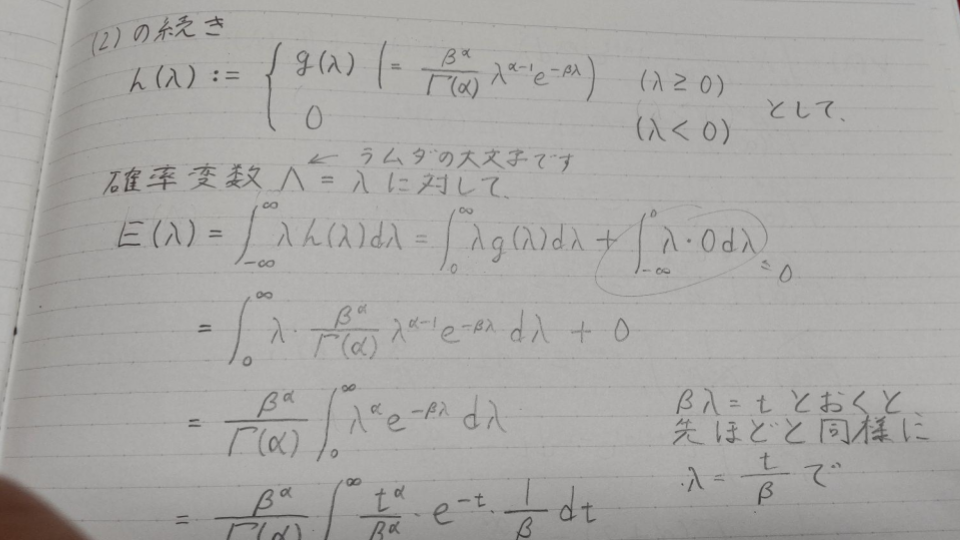 (2)の続き
h(λ) := { g(λ) ( = β^α/Γ(α) λ^{α-1} e^{-βλ} ) (λ ≥ 0)
0 (λ < 0) として、
← ラムダの大文字です
確率変数 Λ = λ に対して、
E(λ) = ∫_{-∞}^{∞} λh(λ)dλ = ∫_0^∞ λg(λ)dλ + ∫_{-∞}^0 λ・0dλ = 0
= ∫_0^∞ λ・β^α/Γ(α) λ^{α-1} e^{-βλ} dλ + 0
= β^α/Γ(α) ∫_0^∞ λ^α e^{-βλ} dλ
βλ = t とおくと、
先ほどと同様に
λ = t/β で
= β^α/Γ(α) ∫^∞ t^α/β^α・e^{-t}・1/β dt